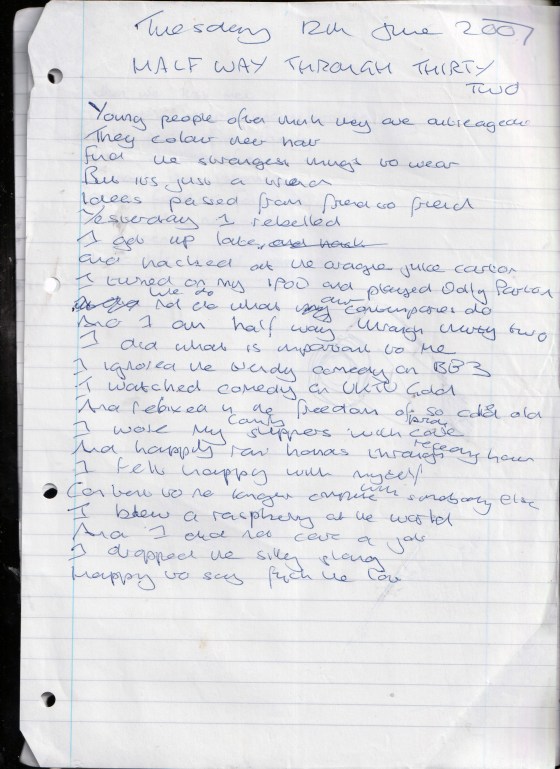 Tuesday 12th June 2007
HALF WAY THROUGH THIRTY
TWO
Young people often think they are outrageous
They colour their hair
Find the strangest things to wear
But it's just a trend
Ideas passed from friend to friend
Yesterday I rebelled
I got up late, and hack
And hacked at the orange juice carton
I turned on my IPOD and played Dolly Parton
We do not do what our contemporaries do
And I am half way through thirty two
I did what is important to me
I ignored the trendy comedy on BBC3
I watched comedy on UKTV Gold
And rebixed in the freedom of so called old
I wore my comfy slippers with pride
And happily ran hands through receding hair
I felt happy with myself
Content to no longer compete with somebody else
I blew a raspberry at the world
And I did not care a jot
I dropped the silly slang
Happy to say